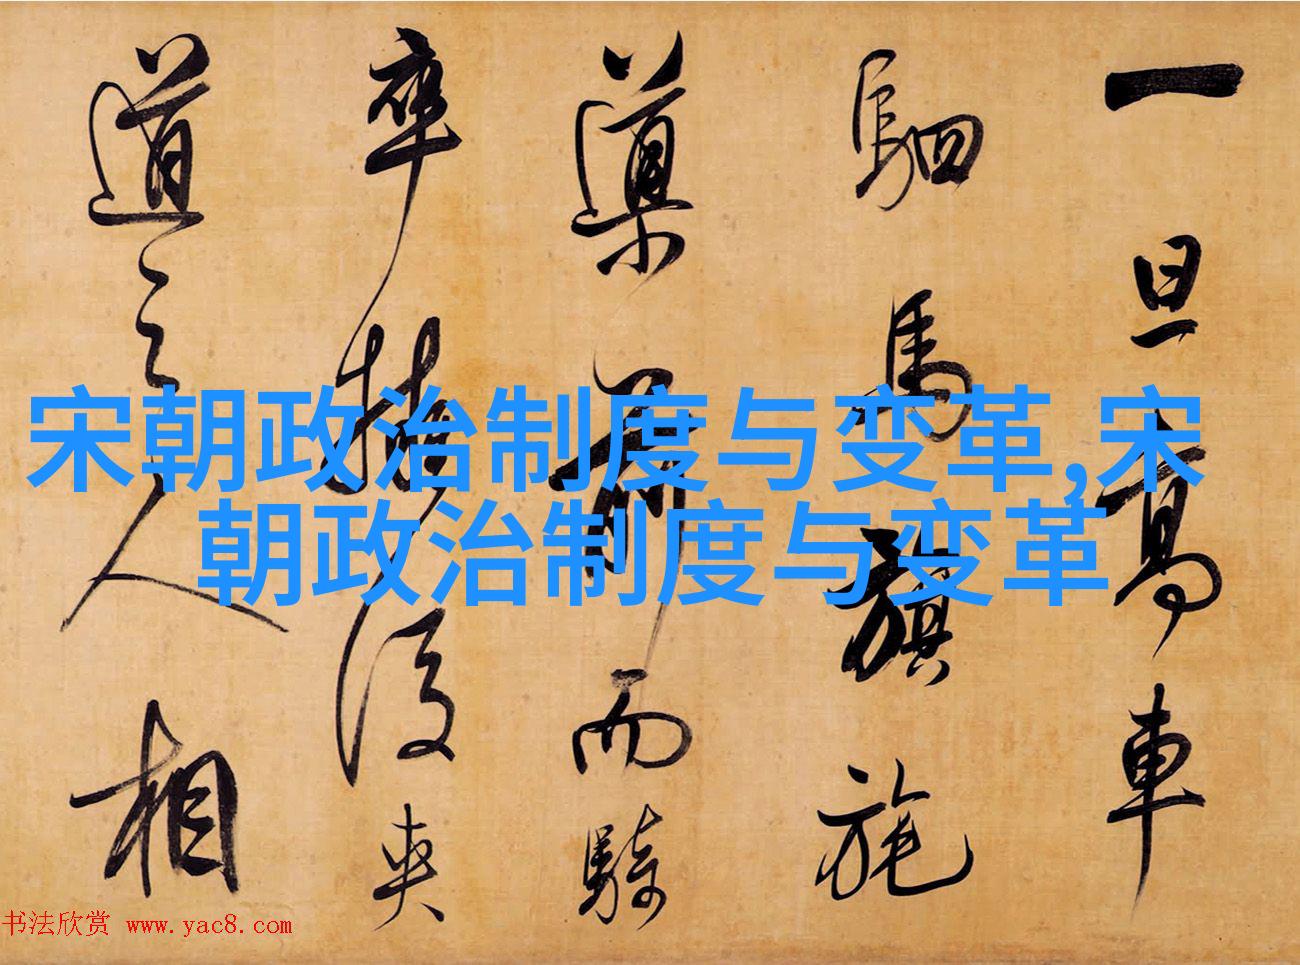 一旦高車
駟馬旗旄
導前而騎
卒擁後夾
道之人相
宋朝政治制度与变革,宋
朝政治制度与变革
书法欣赏 www.yac8.com